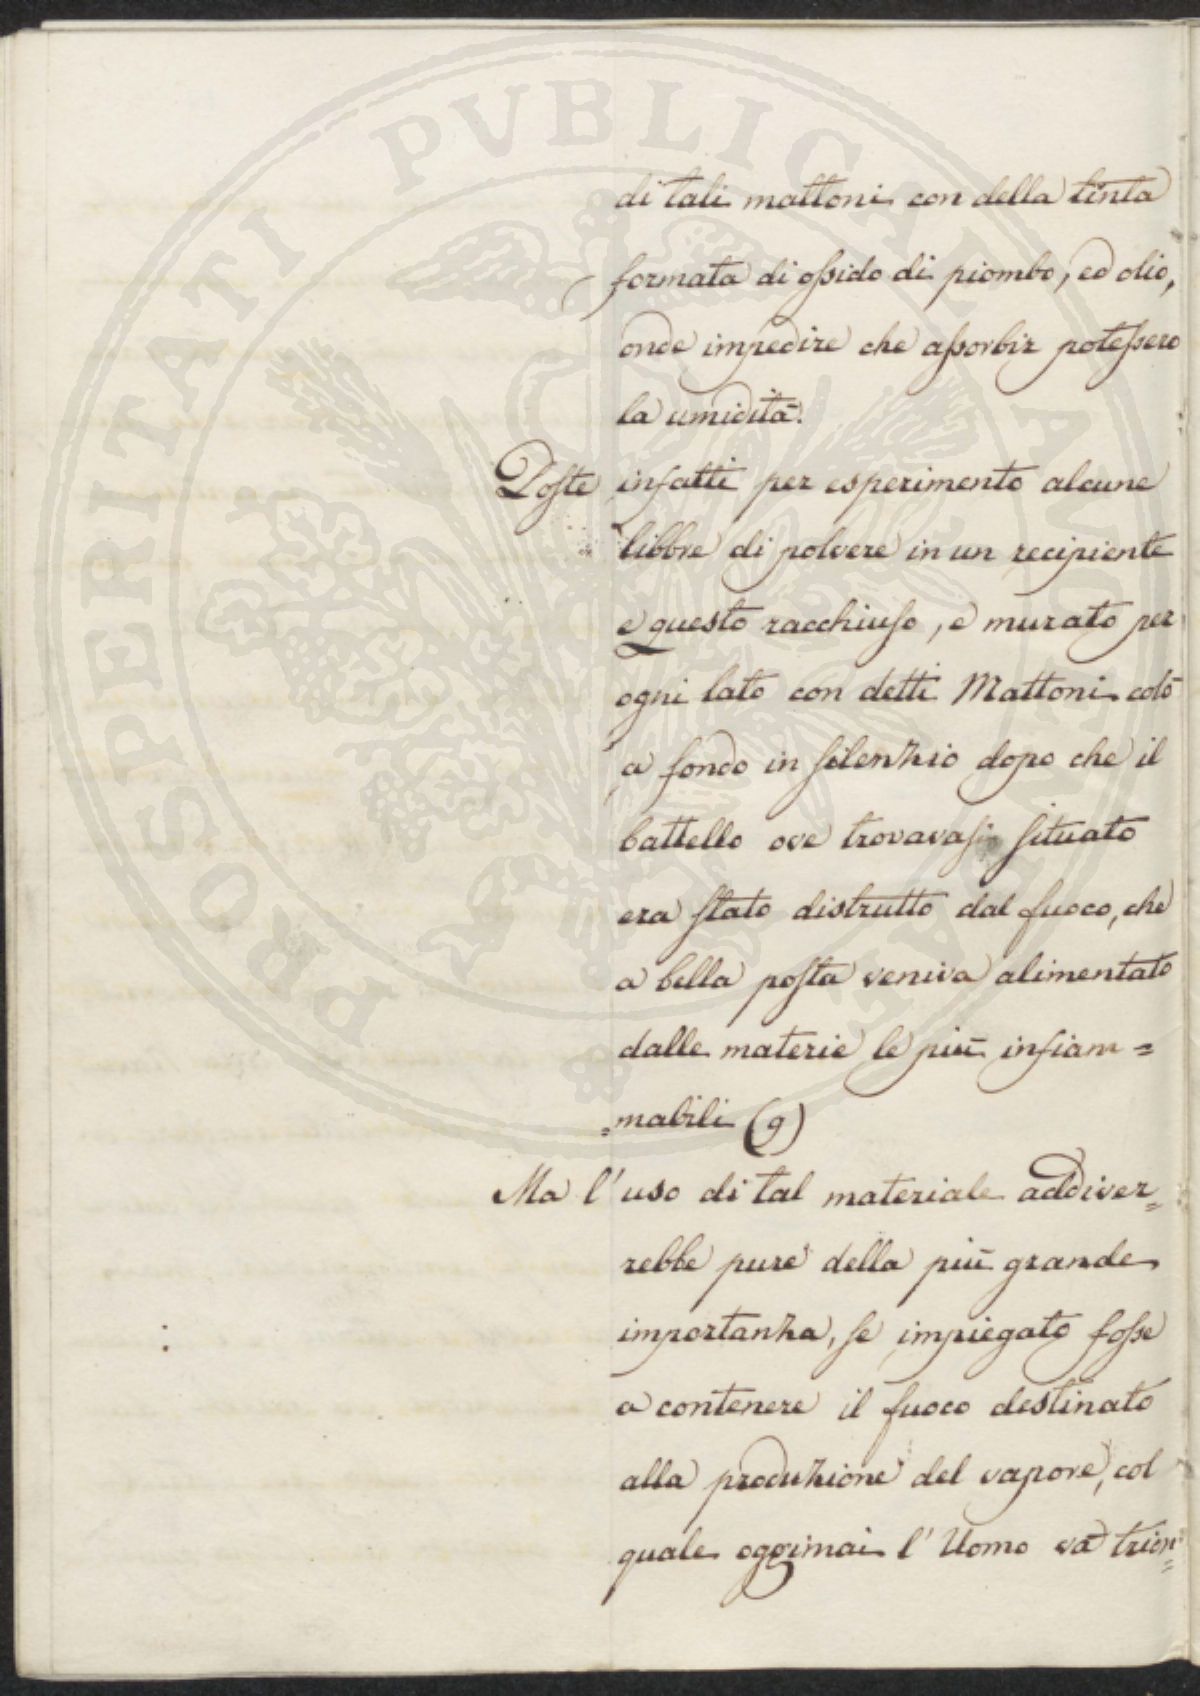 di tali mattoni con della tinta
formata di ossido di piombo, ed olio,
onde impedire che assorbir potessero
la umidità.
Poste infatti per esperimento alcune
libbre di polvere in un recipiente
e questo racchiuso, e murato per
ogni lato con detti Mattoni colò
a fondo in silenzio dopo che il
battello ove trovavasi situato
era stato distrutto dal fuoco, che
a bella posta veniva alimentato
dalle materie le più infiam=
=mabili (9)
Ma l'uso di tal materiale addiver=
rebbe pure della più grande
importanza, se impiegato fosse
a contenere il fuoco destinato
alla produzione del vapore, col
quale oggimai l'Uomo va trion=
PROSPERITATI PVBLICAE AVGENDAE